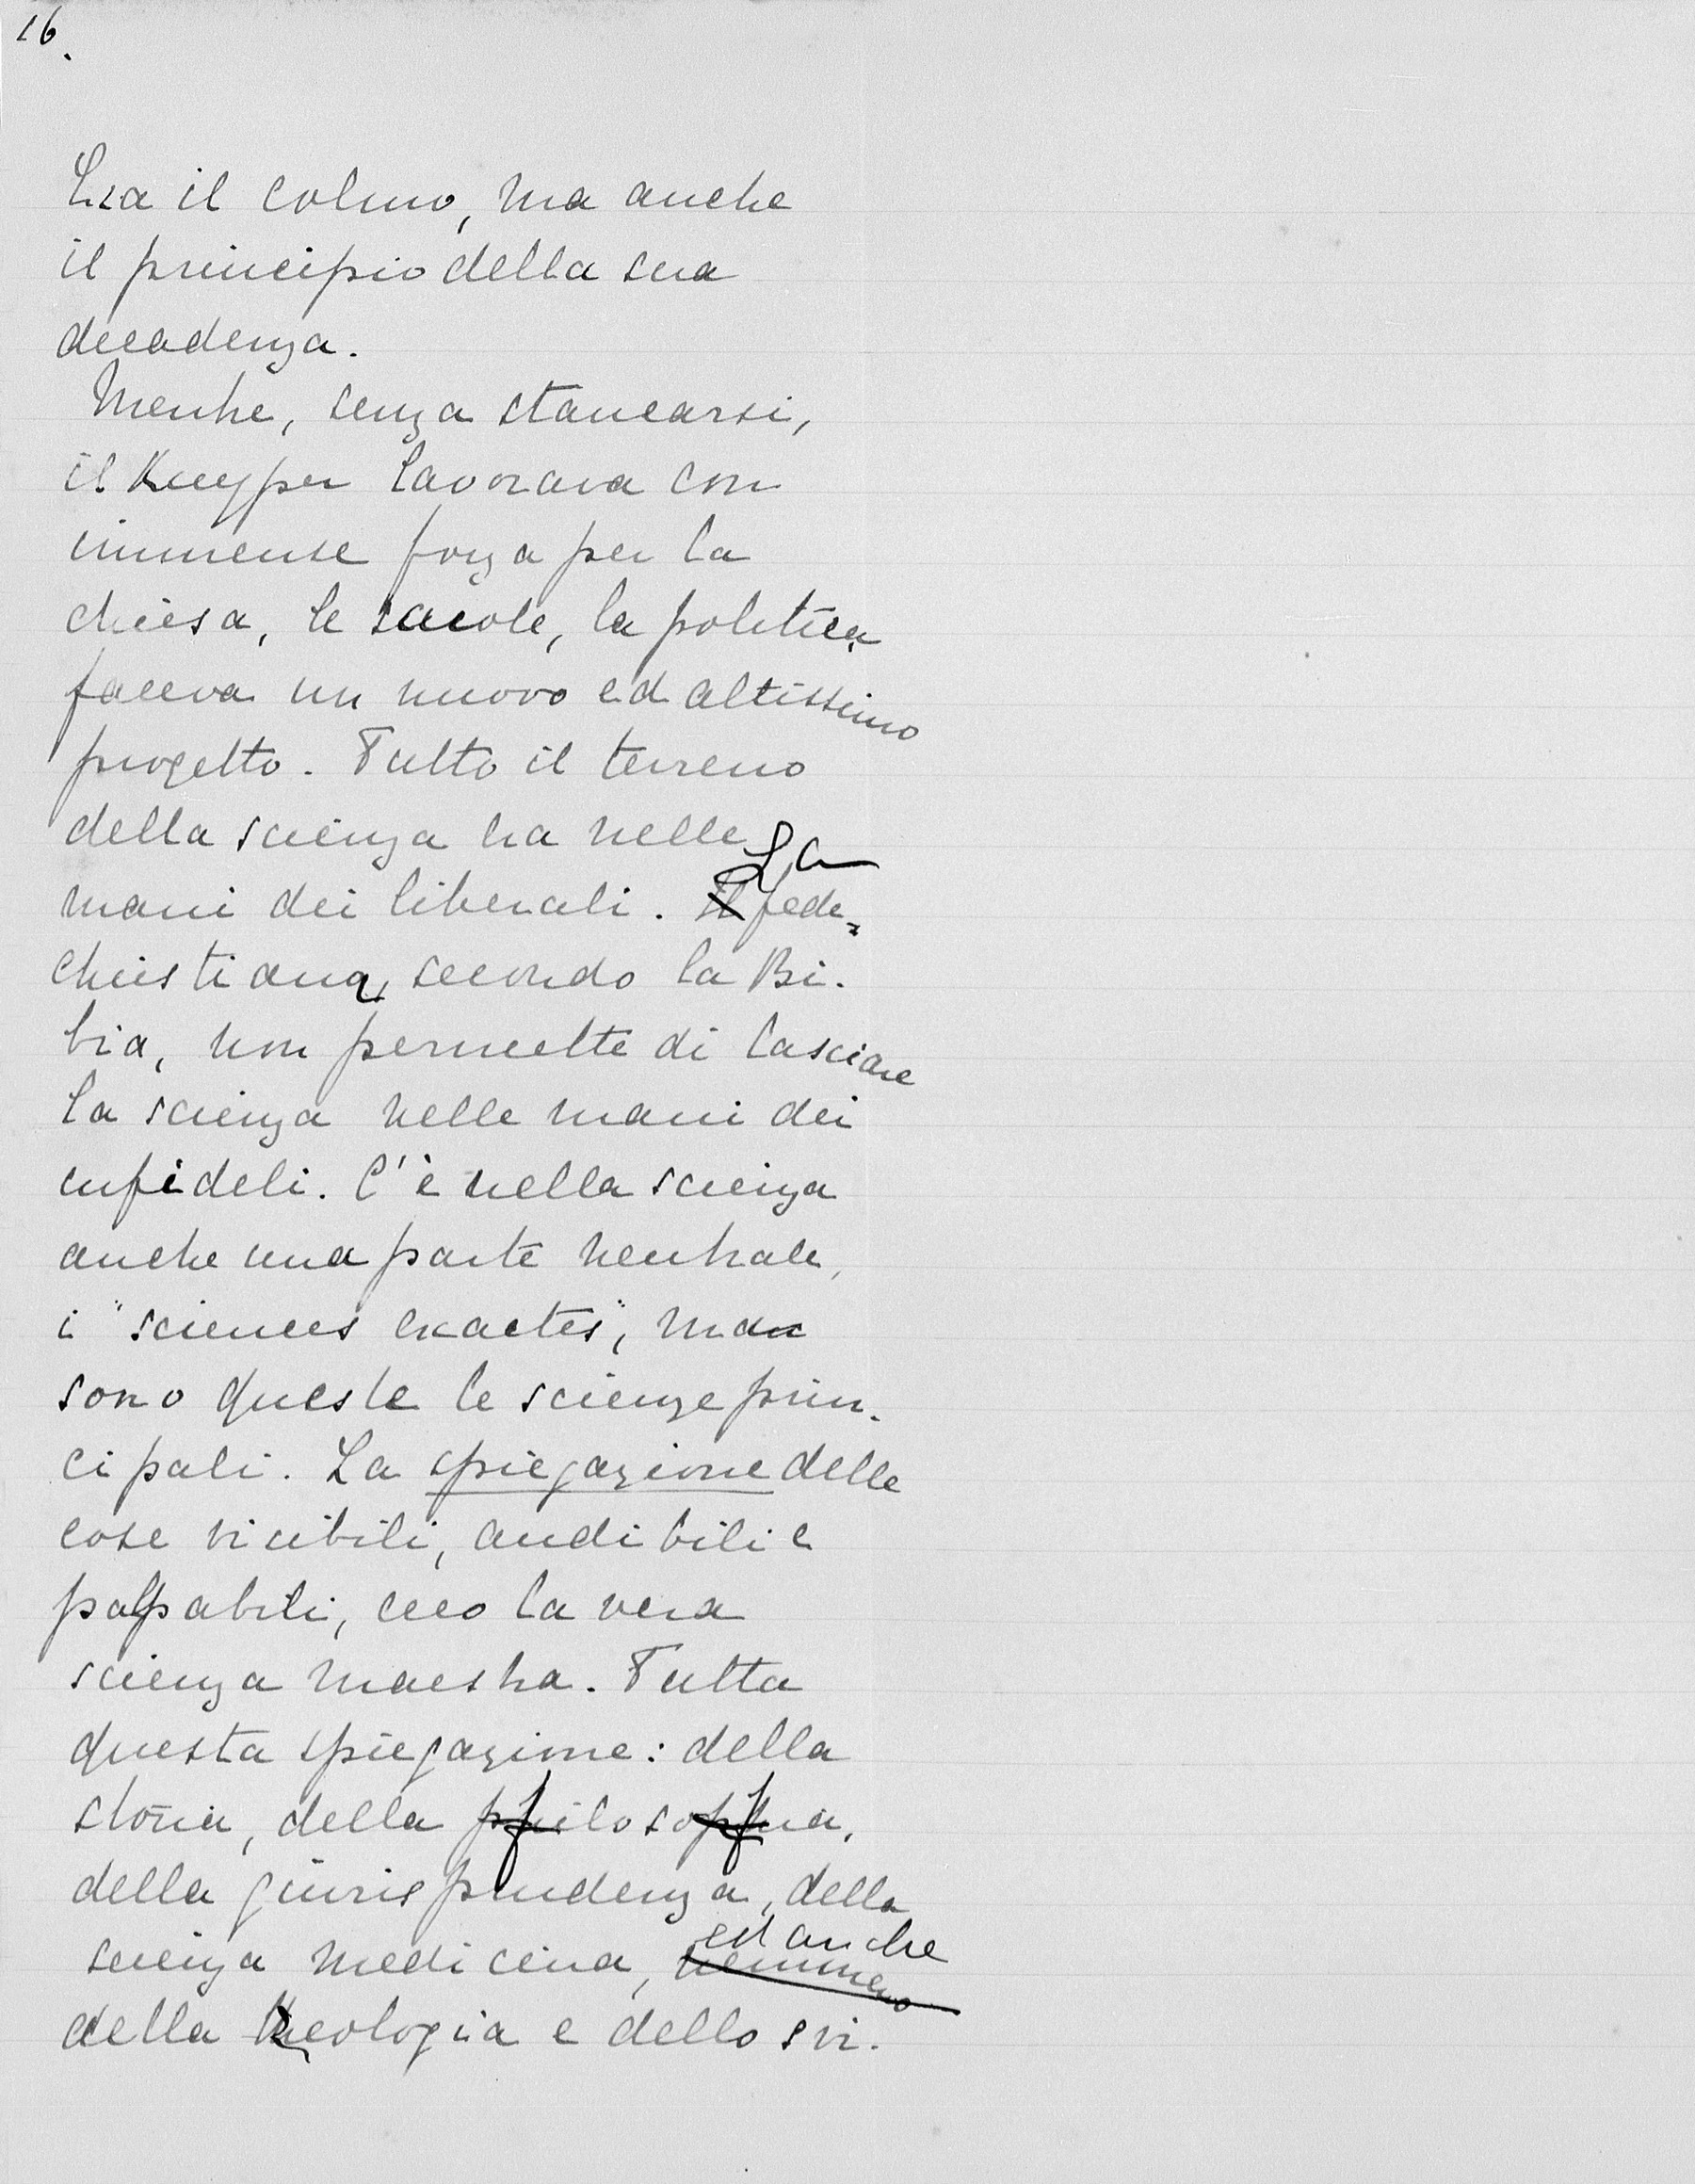 16.
Era il colmo, ma anche
il principio della sua
decadenza.
Mentre, senza stancarsi,
il Kuyper lavorava con
immense forza per la
chiesa, le scuole, la politica,
faceva un nuovo ed altissimo
progetto. Tutto il terreno
della scienza era nelle
mani dei liberali. La fede
christiana, secondo la Bi-
bia, non permette di lasciare
la scienza nelle mani dei
infideli. C'è nella scienza
anche una parte neutrale,
i "sciences exactes", ma
sono queste le scienze prin-
cipali. La spiegazione delle
cose visibili, audibili e
palpabili, ecco la vera
scienza maestra. Tutta
questa spiegazione: della
storia, della filosofia,
della giurisprudenza, della
scienza medicina, ed anche
della teologia e dello svi-